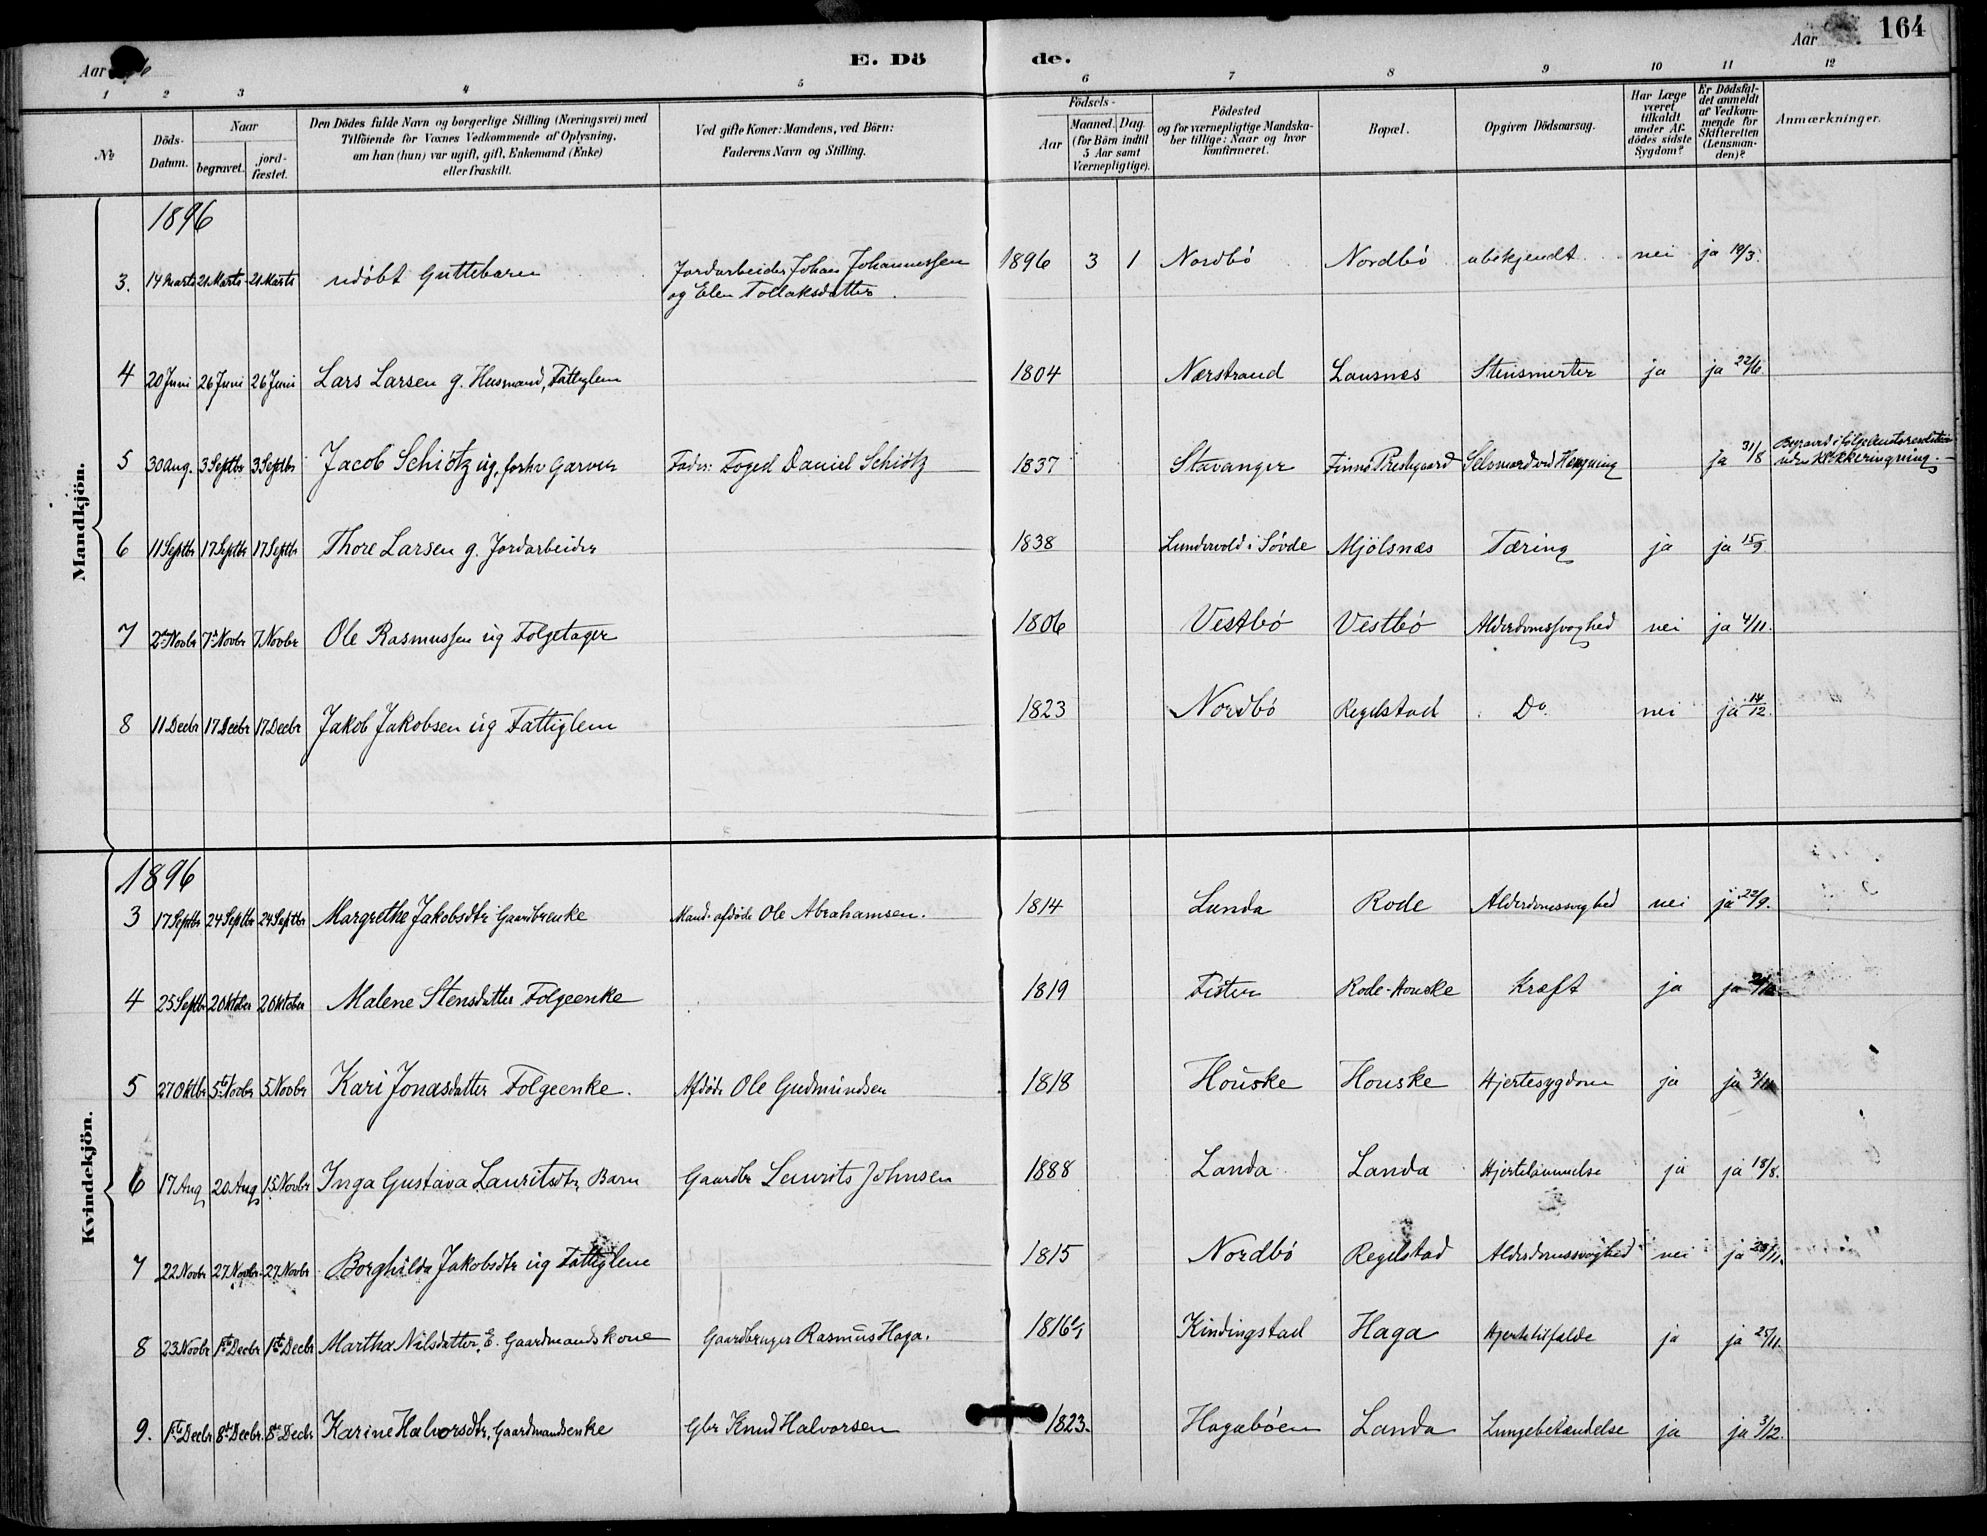 Aar
E. Dö
de.
Aar
164
1 2 3 4 5 6 7 8 9 10 11 12
№
Döds-Datum.
Naar
begravet.
jord-fæstet.
Den Dödes fulde Navn og borgerlige Stilling (Næringsvei) med
Tilföiende for Voxnes Vedkommende af Oplysning,
om han (hun) var ugift, gift, Enkemand (Enke)
eller fraskilt.
Ved gifte Koner: Mandens, ved Börn:
Faderens Navn og Stilling.
Födsels-
Aar
Maaned. Dag.
(for Börn indtil
5 Aar samt
Værnepligtige).
Födested
og for værnepligtige Mandska-
ber tillige: Naar og hvor
konfirmeret.
Bopæl.
Opgiven Dödsaarsag.
Har Læge
været
tilkaldt
under Af-
dödes sidste
Sygdom?
Er Dödsfal-
det anmeldt
af Vedkom-
mende for
Skifteretten
(Lensman-
den)?
Anmærkninger.
Mandkjön.
1896
3. 14 Marts 21 Marts 21 Marts udøbt Guttebarn Jordarbeider Johan Johannessen 1896 3 1 Nordbö Nordbö ubekjendt nei ja 19/3.
og Elen Tollaksdatter.
4 20 Juni 26 Juni 26 Juni Lars Larsen g. Husmand, Fattiglem 1804 Nærstrand Lausnes Stensmerter ja ja 22/6
5 30 Aug. 3 Septbr 3 Septbr Jacob Schiötz ug. forhv Garver Fader: Foged Daniel Schiötz 1837 Stavanger Finnö Prestegaard Selvmord ved Hengning ja 31/8 Begravet i følge Amtsresolution
uden Klokkeringning.
6 11 Septbr 17 Septbr 17 Septbr Thore Larsen g. Jordarbeider 1838 Lundervold i Søvde Mjölsnæs Tæring ja ja 15/9
7 2 Novbr 7 Novbr 7 Novbr Ole Rasmussen ug Folgetager 1806 Vestbö Vestbö Alderdomssvaghed nei ja 4/11.
8 11 Decbr 17 Decbr 17 Decbr Jakob Jakobsen ug Fattiglem 1823 Nordbö Regelstad Do. nei ja 14/12.
Kvindekjön.
1896
3 17 Septbr 24 Septbr 24 Septbr Margrethe Jakobsdtr Gaardbrenke Mand. afdöde Ole Abrahamsen. 1814 Lunda Rode Alderdomssvaghed nei ja 22/9.
4 25 Septbr 2 Oktober 2 Oktober Malene Stensdatter Folgeenke 1819 Fister Rode-Houske Kræft ja ja
5 27 Oktbr 5 Novbr 5 Novbr Kari Jonasdatter Folgeenke. Afdöde Ole Gudmundsen 1818 Houske Houske Hjertesygdom ja ja 3/11
6 17 Aug 20 Aug 15 Novbr Inga Gustava Lauritsdtr Barn Gaardbr Laurits Johnsen 1888 Landa Landa Hjertelammelse ja ja 18/8.
7 22 Novbr 27 Novbr 27 Novbr Borghilda Jakobsdtr ug Fattiglem 1815 Nordbö Regelstad Alderdomssvaghed nei ja /11.
8 23 Novbr 1st Decbr 1st Decbr Martha Nilsdatter, E. Gaardmandskone Gaardbruger Rasmus Haga. 1816 Kindingstad Haga Hjertetilfælde ja ja 25/11.
9. 1st Decbr 8de Decbr. 8de Decbr Karine Halvorsdtr, Gaardmandsenke Gbr Knud Halvorsen 1823. Hagabøen Landa Lungebetændelse ja ja 3/12.